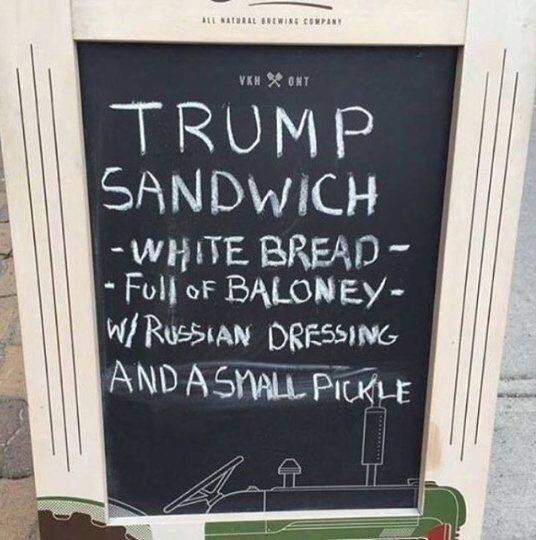 ALL NATURAL BREWING COMPANY
VKH ONT
TRUMP
SANDWICH
-WHITE BREAD-
-Full OF BALONEY-
W/ RUSSIAN DRESSING
AND A SMALL PICKLE